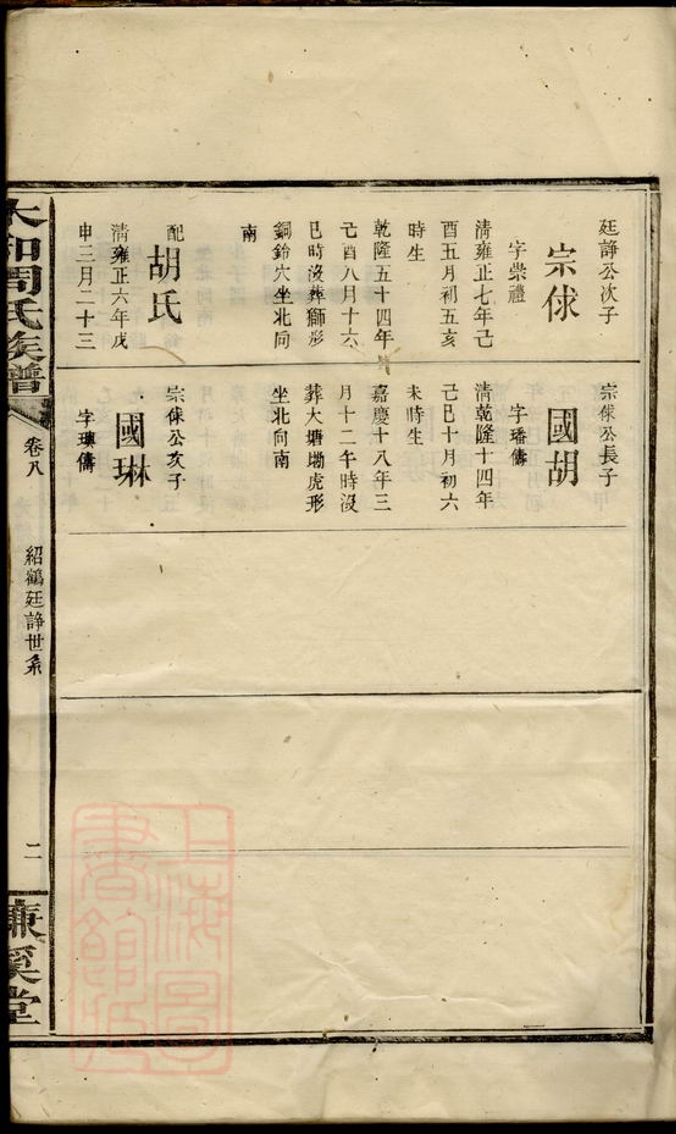 廷諍公次子
宗俅
字崇禮
清雍正七年己
酉五月初五亥
時生
乾隆五十四年
己酉八月十六
巳時沒葬獅形
銅鈴穴坐北向
南
配
胡氏
清雍正六年戊
申三月二十三
宗俅公長子
國胡
字璠儔
清乾隆十四年
己巳十月初六
未時生
嘉慶十八年三
月十二午時沒
葬大塘塝虎形
坐北向南
宗俅公次子
國琳
字璵儔
太和周氏族譜
卷八
紹鶴廷諍世系
二
濂溪堂
上海圖
書館藏